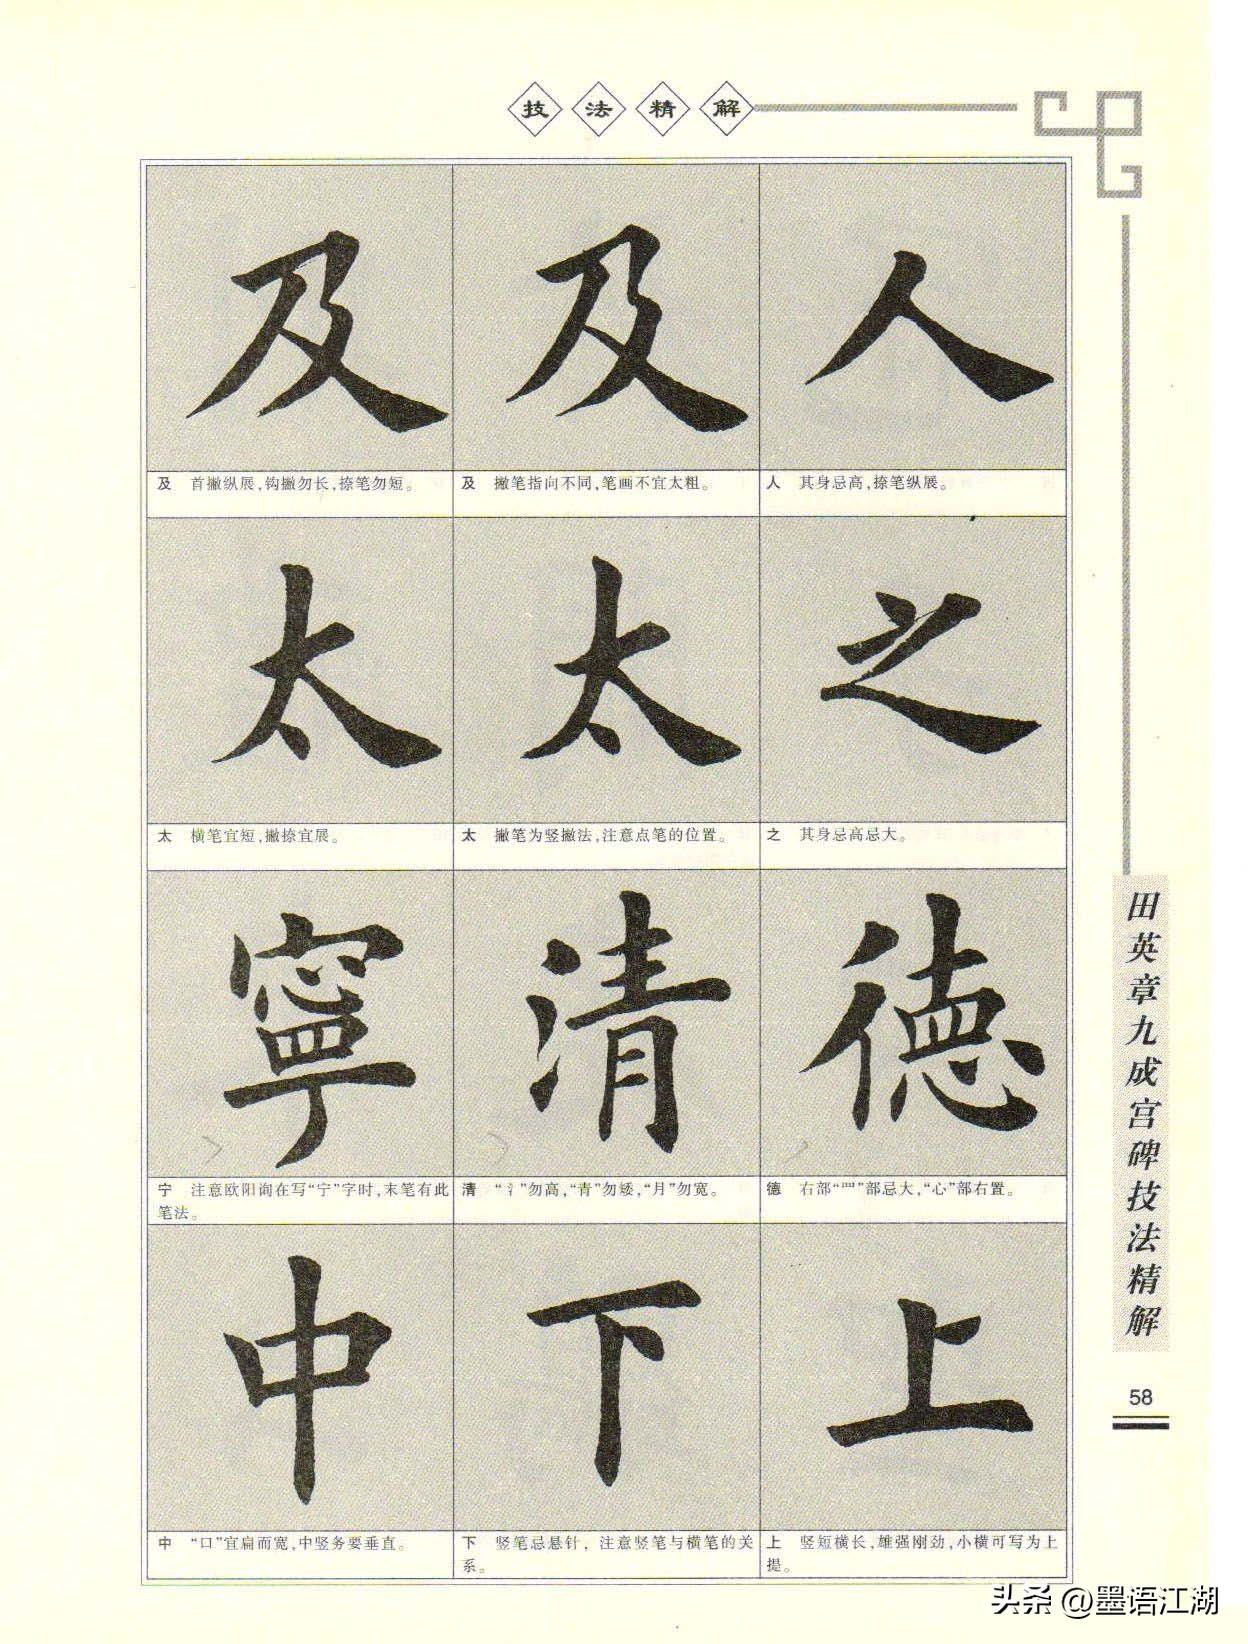 技法精解
及 及 人
及 首撇纵展,钩撇勿长,捺笔勿短。
及 撇笔指向不同,笔画不宜太粗。
人 其身忌高,捺笔纵展。
太 太 之
太 横笔宜短,撇捺宜展。
太 撇笔为竖撇法,注意点笔的位置。
之 其身忌高忌大。
寧 清 德
宁 注意欧阳询在写“宁”字时,末笔有此
笔法。
清 “氵”勿高,“青”勿矮,“月”勿宽。
德 右部“罒”部忌大,“心”部右置。
中 下 上
中 “口”宜扁而宽,中竖务要垂直。
下 竖笔忌悬针，注意竖笔与横笔的关
系。
上 竖短横长,雄强刚劲,小横可写为上
提。
田英章九成宫碑技法精解
58
头条 @墨语江湖